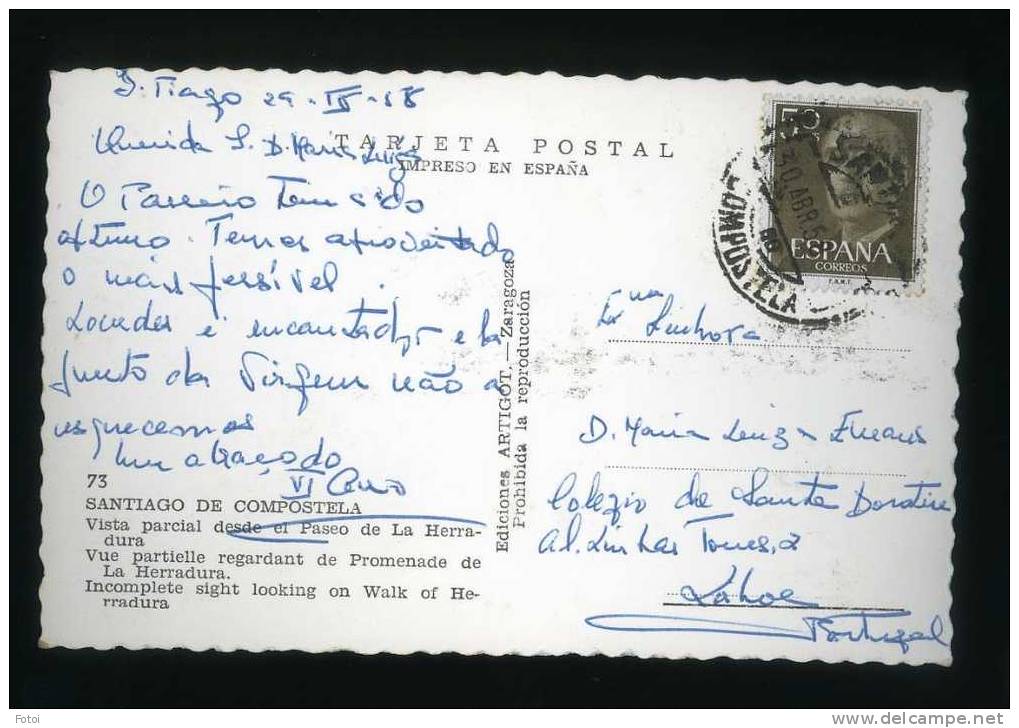 S. Tiago 29-IV-58
TARJETA POSTAL
IMPRESO EN ESPAÑA
Querida S. D. Maria Luiza
O Passeio tem sido
óptimo. Temos aproveitado
o mais possível.
Lourdes é encantador e lá
junto da Virgem não a
esquecemos
Um abraço do
VI Ano
73
SANTIAGO DE COMPOSTELA
Vista parcial desde el Paseo de La Herra-
dura
Vue partielle regardant de Promenade de
La Herradura.
Incomplete sight looking on Walk of He-
rradura
Ediciones ARTIGOT.—Zaragoza
Prohibida la reproducción
50
30 ABR 5
COMPOSTELA
ESPAÑA
CORREOS
F.N.M.T.
Exma Senhora
D. Maria Luiza
Colégio de Santa Doroteia
Al. Linhas Torres, 2
Lisboa
Portugal
Fotoi
www.delcampe.net